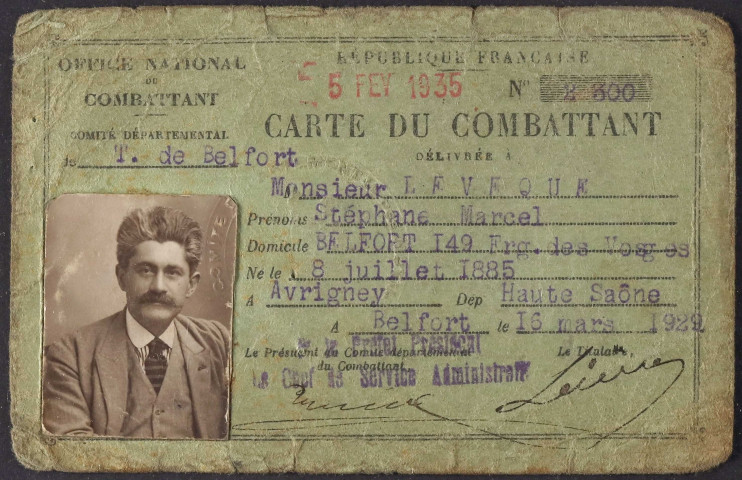 OFFICE NATIONAL
DU
COMBATTANT
COMITÉ DÉPARTEMENTAL
de T. de Belfort
RÉPUBLIQUE FRANÇAISE
5 FEV 1935
N° 2 300
CARTE DU COMBATTANT
DÉLIVRÉE A
Monsieur LEVEQUE
Prénoms Stéphane Marcel
Domicile BELFORT I49 Frg. des Vosges
Né le 8 juillet I885
A Avrigney Dép Haute Saône
A Belfort le I6 mars 1929
Le Président du Comité départemental
du Combattant,
Le Titulaire,
le Préfet Président
Le Chef de Service Administratif
COMITE